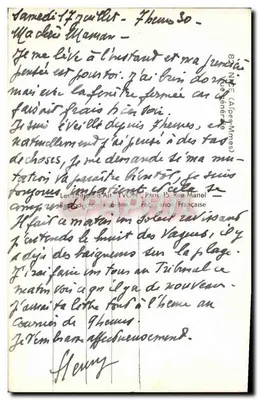 Samedi 17 juillet - 7 heures 30 -
Ma chère Maman -
Je me lève à l'instant et ma première
pensée est pour toi. J'ai bien dormi
mais la fenêtre fermée car il
faisait frais
Je suis éveillé depuis 7 heures, et
naturellement j'ai pensé à des tas
de choses, je me demande si ma mu-
tation va paraître bientôt, je suis
toujours impatient, et cela se
comprend.
Il fait ce matin un soleil ravissant
j'entends le bruit des vagues, il y
a déjà des baigneurs sur la plage.
J'irai faire un tour au Tribunal ce
matin voir ce qu'il y a de nouveau.
J'aurai ta lettre tout à l'heure au
courrier de 9 heures.
Je t'embrasse affectueusement.
Henry
NICE (Alpes-Mmes)